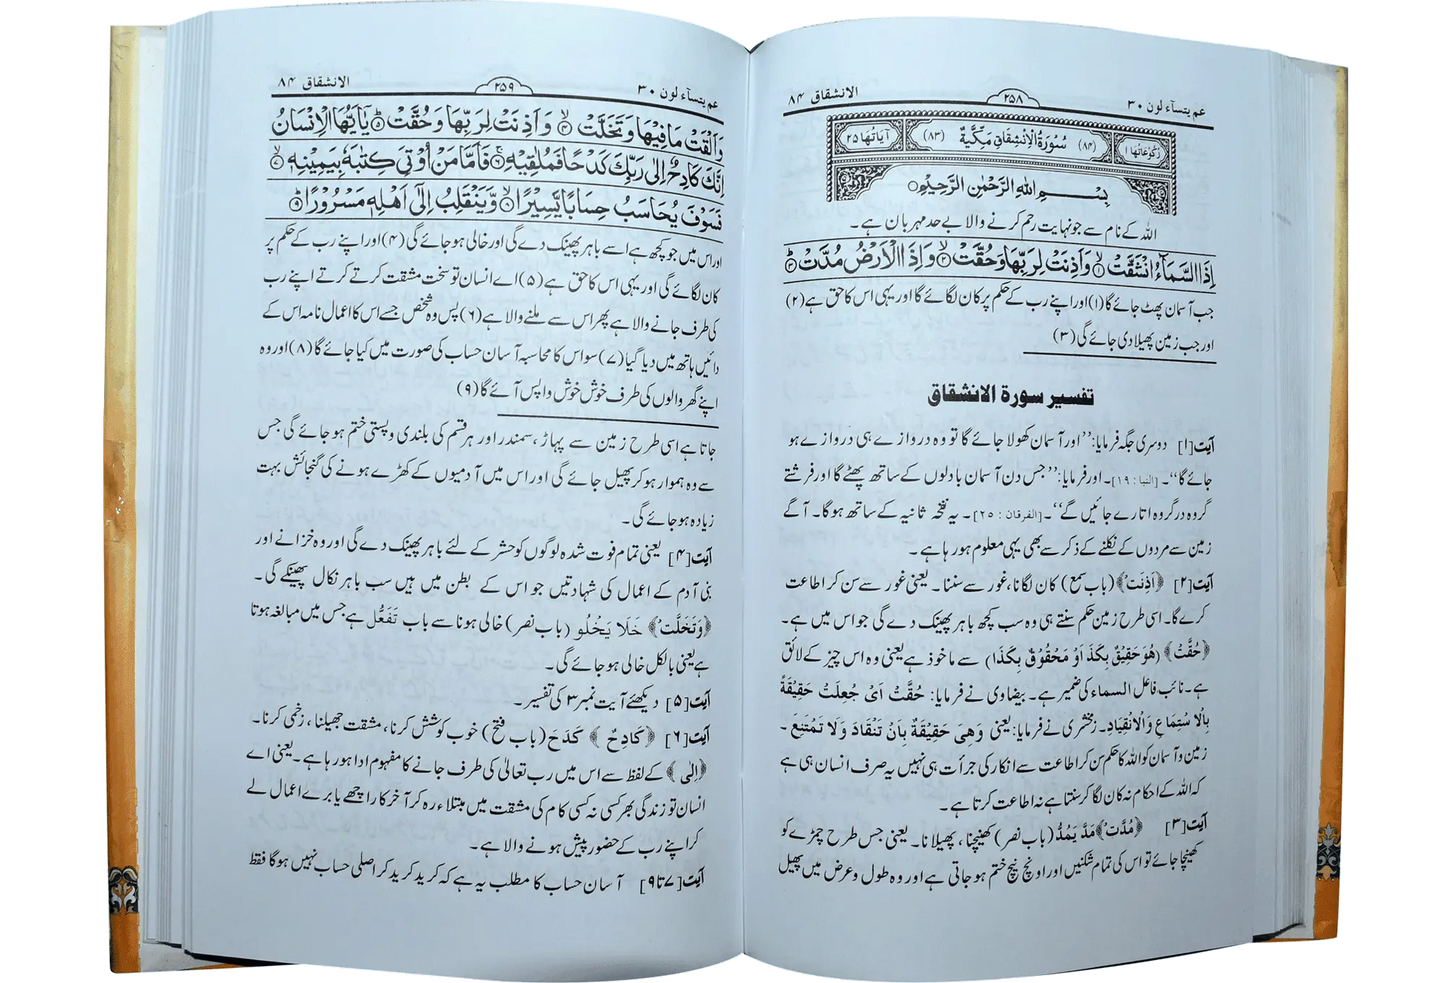 عم یتسآء لون ۳۰
۲۵۸
الانشقاق ۸۴
رکوعاتہا ۱
(۸۴) سُوْرَةُ الْاِنْشِقَاقِ مَكِّيَّةٌ (۸۳)
آیاتہا ۲۵
بِسْمِ اللهِ الرَّحْمٰنِ الرَّحِيْمِ
اللہ کے نام سے جو نہایت رحم کرنے والا بے حد مہربان ہے۔
اِذَا السَّمَآءُ انْشَقَّتْ ۱ وَاَذِنَتْ لِرَبِّهَا وَحُقَّتْ ۲ وَاِذَا الْاَرْضُ مُدَّتْ ۳
جب آسمان پھٹ جائے گا (۱) اور اپنے رب کے حکم پر کان لگائے گا اور یہی اس کا حق ہے (۲)
اور جب زمین پھیلا دی جائے گی (۳)
تفسیر سورة الانشقاق
آیت [۱] دوسری جگہ فرمایا: ’’اور آسمان کھولا جائے گا تو وہ دروازے ہی دروازے ہو
جائے گا‘‘۔ [النبا : ۱۹]۔ اور فرمایا: ’’جس دن آسمان بادلوں کے ساتھ پھٹے گا اور فرشتے
گروہ در گروہ اتارے جائیں گے‘‘۔ [الفرقان : ۲۵]۔ یہ نفخہ ثانیہ کے ساتھ ہوگا۔ آگے
زمین سے مردوں کے نکلنے کے ذکر سے بھی یہی معلوم ہو رہا ہے۔
آیت [۲] ﴿اَذِنَتْ﴾ (باب سمع) کان لگانا، غور سے سننا۔ یعنی غور سے سن کر اطاعت
کرے گا۔ اسی طرح زمین حکم سنتے ہی وہ سب کچھ باہر پھینک دے گی جو اس میں ہے۔
﴿حُقَّتْ﴾ (هُوَ حَقِيْقٌ بِكَذَا اَوْ مَحْقُوْقٌ بِكَذَا) سے ماخوذ ہے یعنی وہ اس چیز کے لائق
ہے۔ نائب فاعل السماء کی ضمیر ہے۔ بیضاوی نے فرمایا: حُقَّتْ اَیْ جُعِلَتْ حَقِيْقَةً
بِالْاِسْتِمَاعِ وَالْاِنْقِيَادِ۔ زمخشری نے فرمایا: یعنی وَهِیَ حَقِيْقَةٌ بِاَنْ تَنْقَادَ وَلَا تَمْتَنِعَ۔
زمین و آسمان کو اللہ کا حکم سن کر اطاعت سے انکار کی جرأت ہی نہیں یہ صرف انسان ہی ہے
کہ اللہ کے احکام نہ کان لگا کر سنتا ہے نہ اطاعت کرتا ہے۔
آیت [۳] ﴿مُدَّتْ﴾ مَدَّ يَمُدُّ (باب نصر) کھینچنا، پھیلانا۔ یعنی جس طرح چمڑے کو
کھینچا جائے تو اس کی تمام شکنیں اور اونچ نیچ ختم ہو جاتی ہے اور وہ طول و عرض میں پھیل
عم یتسآء لون ۳۰
۲۵۹
الانشقاق ۸۴
وَاَلْقَتْ مَا فِيْهَا وَتَخَلَّتْ ۴ وَاَذِنَتْ لِرَبِّهَا وَحُقَّتْ ۵ يٰۤاَيُّهَا الْاِنْسَانُ
اِنَّكَ كَادِحٌ اِلٰى رَبِّكَ كَدْحًا فَمُلٰقِيْهِ ۶ فَاَمَّا مَنْ اُوْتِيَ كِتٰبَهٗ بِيَمِيْنِهٖ ۷
فَسَوْفَ يُحَاسَبُ حِسَابًا يَّسِيْرًا ۸ وَّيَنْقَلِبُ اِلٰۤى اَهْلِهٖ مَسْرُوْرًا ۹
اور اس میں جو کچھ ہے اسے باہر پھینک دے گی اور خالی ہو جائے گی (۴) اور اپنے رب کے حکم پر
کان لگائے گی اور یہی اس کا حق ہے (۵) اے انسان تو سخت مشقت کرتے کرتے اپنے رب
کی طرف جانے والا ہے پھر اس سے ملنے والا ہے (۶) پس وہ شخص جسے اس کا اعمال نامہ اس کے
دائیں ہاتھ میں دیا گیا (۷) سو اس کا محاسبہ آسان حساب کی صورت میں کیا جائے گا (۸) اور وہ
اپنے گھر والوں کی طرف خوش خوش واپس آئے گا (۹)
جاتا ہے اسی طرح زمین سے پہاڑ، سمندر اور ہر قسم کی بلندی و پستی ختم ہو جائے گی جس
سے وہ ہموار ہو کر پھیل جائے گی اور اس میں آدمیوں کے کھڑے ہونے کی گنجائش بہت
زیادہ ہو جائے گی۔
آیت [۴] یعنی تمام فوت شدہ لوگوں کو حشر کے لئے باہر پھینک دے گی اور وہ خزانے اور
بنی آدم کے اعمال کی شہادتیں جو اس کے بطن میں ہیں سب باہر نکال پھینکے گی۔
﴿وَتَخَلَّتْ﴾ خَلَا يَخْلُو (باب نصر) خالی ہونا سے باب تَفَعُّل ہے جس میں مبالغہ ہوتا
ہے یعنی بالکل خالی ہو جائے گی۔
آیت [۵] دیکھئے آیت نمبر ۳ کی تفسیر۔
آیت [۶] ﴿كَادِحٌ﴾ كَدَحَ (باب فتح) خوب کوشش کرنا، مشقت جھیلنا، زخمی کرنا۔
﴿اِلٰى﴾ کے لفظ سے اس میں رب تعالیٰ کی طرف جانے کا مفہوم ادا ہو رہا ہے۔ یعنی اے
انسان تو زندگی بھر کسی نہ کسی کام کی مشقت میں مبتلا رہ کر آخر کار اچھے یا برے اعمال لے
کر اپنے رب کے حضور پیش ہونے والا ہے۔
آیت [۷ تا ۹] آسان حساب کا مطلب یہ ہے کہ کرید کرید کر اصلی حساب نہیں ہوگا فقط